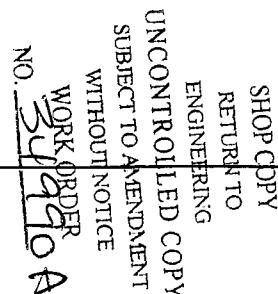 SHOP COPY
RETURN TO
ENGINEERING
UNCONTROLLED COPY
SUBJECT TO AMENDMENT
WITHOUT NOTICE
WORK ORDER
NO. 34990 A